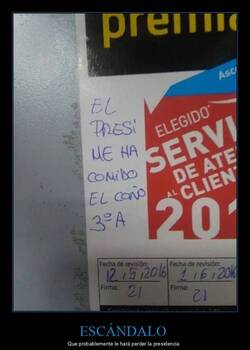 premia
Asc
EL
PRESI
ME HA
COMIDO
EL COÑO
3º A
ELEGIDO
SERVI
DE ATE
AL CLIENT
201
Fecha de revisión:
12/5/2016
Firma:
21
Fecha de revisión:
1/6/2016
Firma:
21
ESCÁNDALO
Que probablemente le hará perder la presidencia